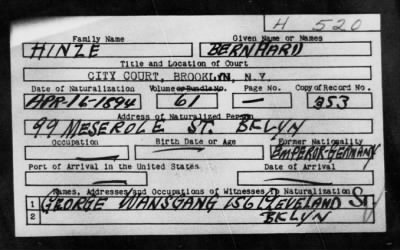 H 520
Family Name Given Name or Names
HINZE BERNHARD
Title and Location of Court
CITY COURT, BROOKLYN, N.Y.
Date of Naturalization Volume or Bundle No. Page No. Copy of Record No.
APR-16-1894 61 — 353
Address of Naturalized Person
99 MESEROLE ST. BKLYN
Occupation Birth Date or Age Former Nationality
— — EMPEROR-GERMANY
Port of Arrival in the United States Date of Arrival
— —
Names, Addresses and Occupations of Witnesses To Naturalization
1 GEORGE WANSGANG 156 CLEVELAND ST
2 BKLYN